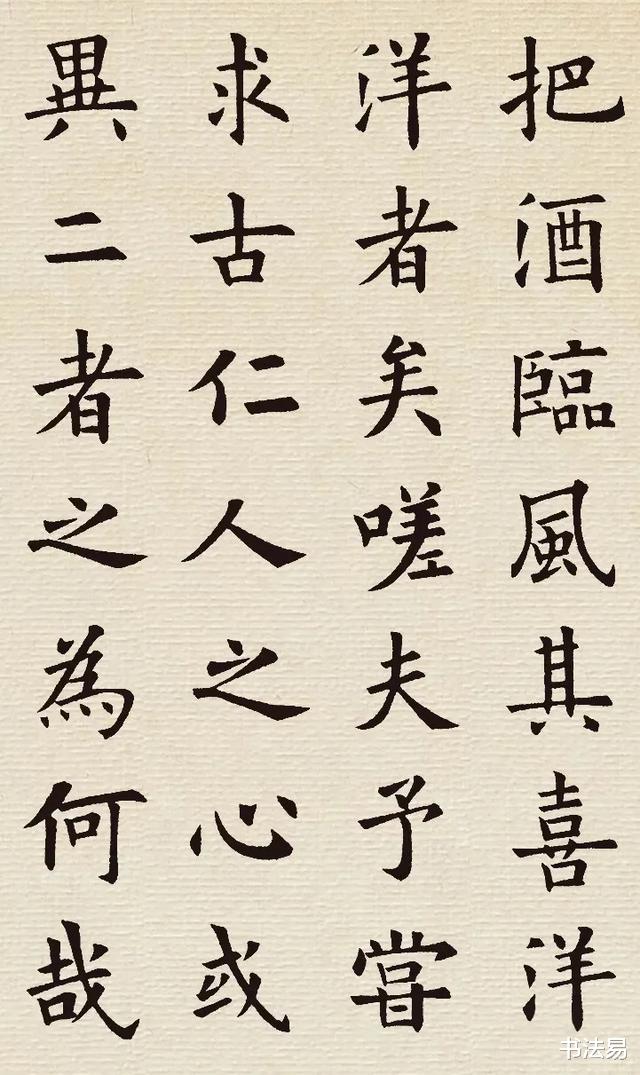 把酒臨風其喜洋
洋者矣嗟夫予甞
求古仁人之心或
異二者之為何哉
书法易